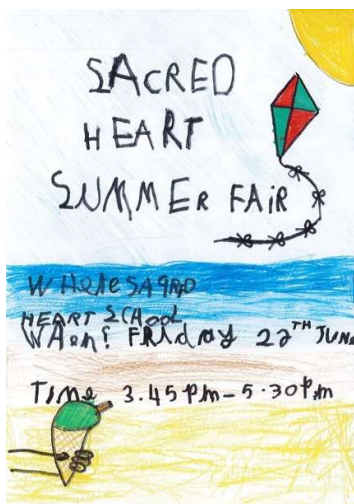 SACRED
HEART
SUMMER FAiR
WHeRe SACRED
HEART SCHOOL
WHEn? FRIday 22TH JUNE
TIMe 3.45 Pm - 5.30 P.m